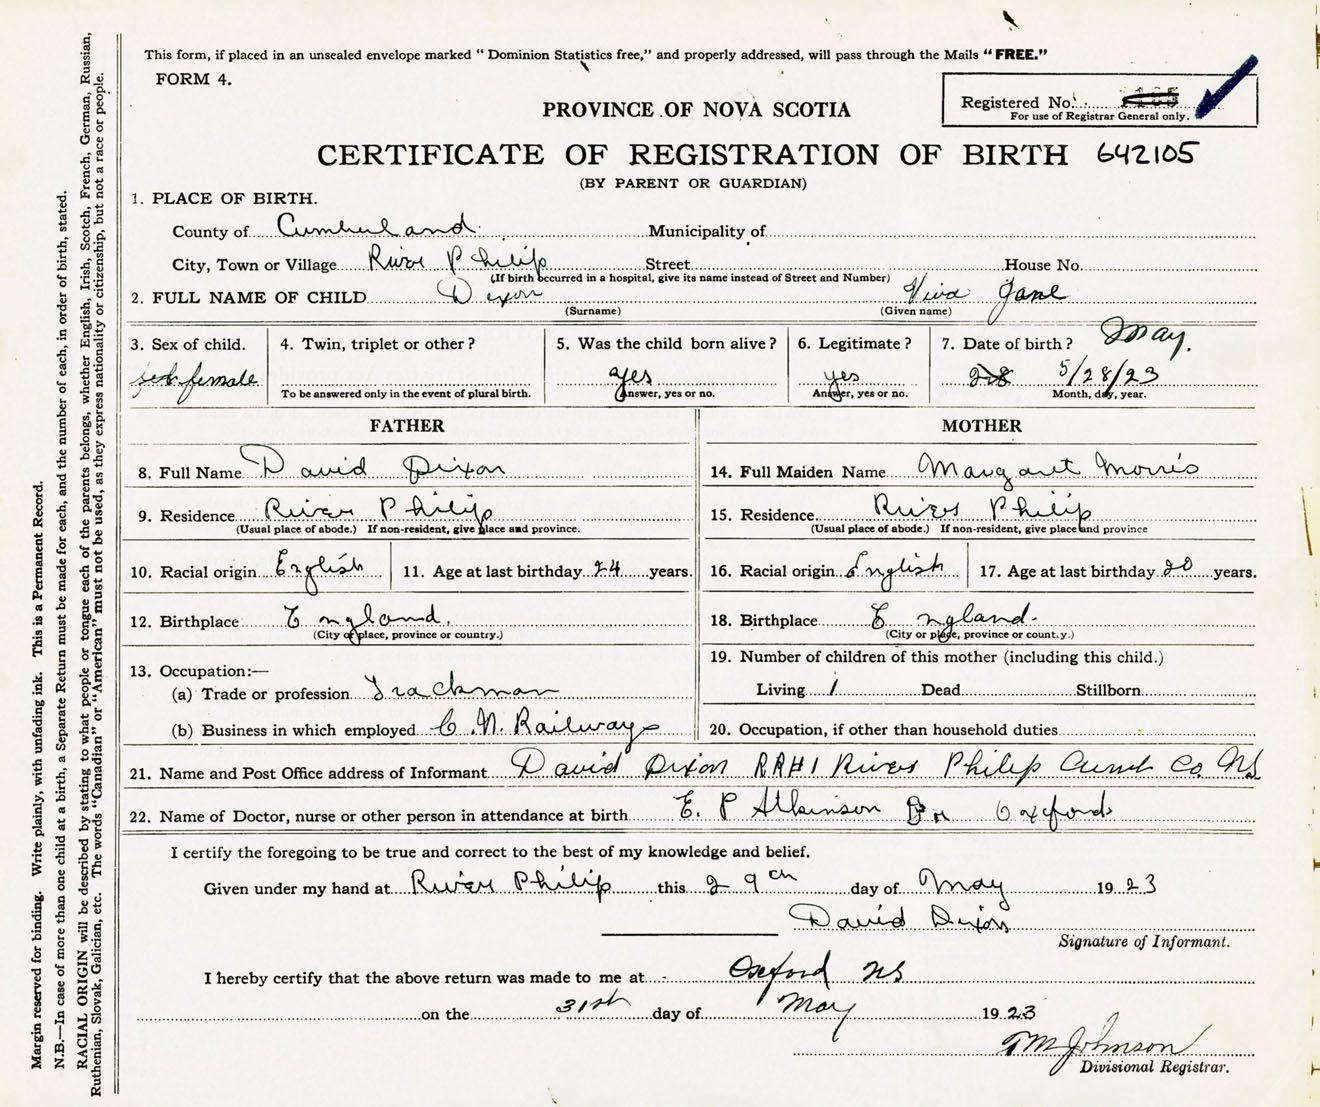 This form, if placed in an unsealed envelope marked "Dominion Statistics free," and properly addressed, will pass through the Mails "FREE."
FORM 4.
Registered No.
For use of Registrar General only.
PROVINCE OF NOVA SCOTIA
CERTIFICATE OF REGISTRATION OF BIRTH 642105
(BY PARENT OR GUARDIAN)
1. PLACE OF BIRTH.
County of Cumberland Municipality of
City, Town or Village River Philip Street House No.
(If birth occurred in a hospital, give its name instead of Street and Number)
2. FULL NAME OF CHILD Dixon Viva Jane
(Surname) (Given name)
3. Sex of child. 4. Twin, triplet or other? 5. Was the child born alive? 6. Legitimate? 7. Date of birth? May.
female yes yes 5/28/23
To be answered only in the event of plural birth. Answer, yes or no. Answer, yes or no. Month, day, year.
FATHER MOTHER
8. Full Name David Dixon 14. Full Maiden Name Margaret Morris
9. Residence River Philip 15. Residence River Philip
(Usual place of abode.) If non-resident, give place and province. (Usual place of abode.) If non-resident, give place and province
10. Racial origin English 11. Age at last birthday 24 years. 16. Racial origin English 17. Age at last birthday 20 years.
12. Birthplace England. 18. Birthplace England.
(City or place, province or country.) (City or place, province or country.)
13. Occupation:— 19. Number of children of this mother (including this child.)
(a) Trade or profession Trackman Living 1 Dead Stillborn
(b) Business in which employed C.N. Railways 20. Occupation, if other than household duties
21. Name and Post Office address of Informant David Dixon RR#1 River Philip Cumb Co. NS
22. Name of Doctor, nurse or other person in attendance at birth E. P Atkinson Dr Oxford
I certify the foregoing to be true and correct to the best of my knowledge and belief.
Given under my hand at River Philip this 29th day of May 1923
David Dixon
Signature of Informant.
I hereby certify that the above return was made to me at Oxford NS
on the 31st day of May 1923
TM Johnson
Divisional Registrar.
Margin reserved for binding. Write plainly, with unfading ink. This is a Permanent Record.
N.B.—In case of more than one child at a birth, a Separate Return must be made for each, and the number of each, in order of birth, stated.
RACIAL ORIGIN will be described by stating to what people or tongue each of the parents belongs, whether English, Irish, Scotch, French, German, Russian,
Ruthenian, Slovak, Galician, etc. The words "Canadian" or "American" must not be used, as they express nationality or citizenship, but not a race or people.